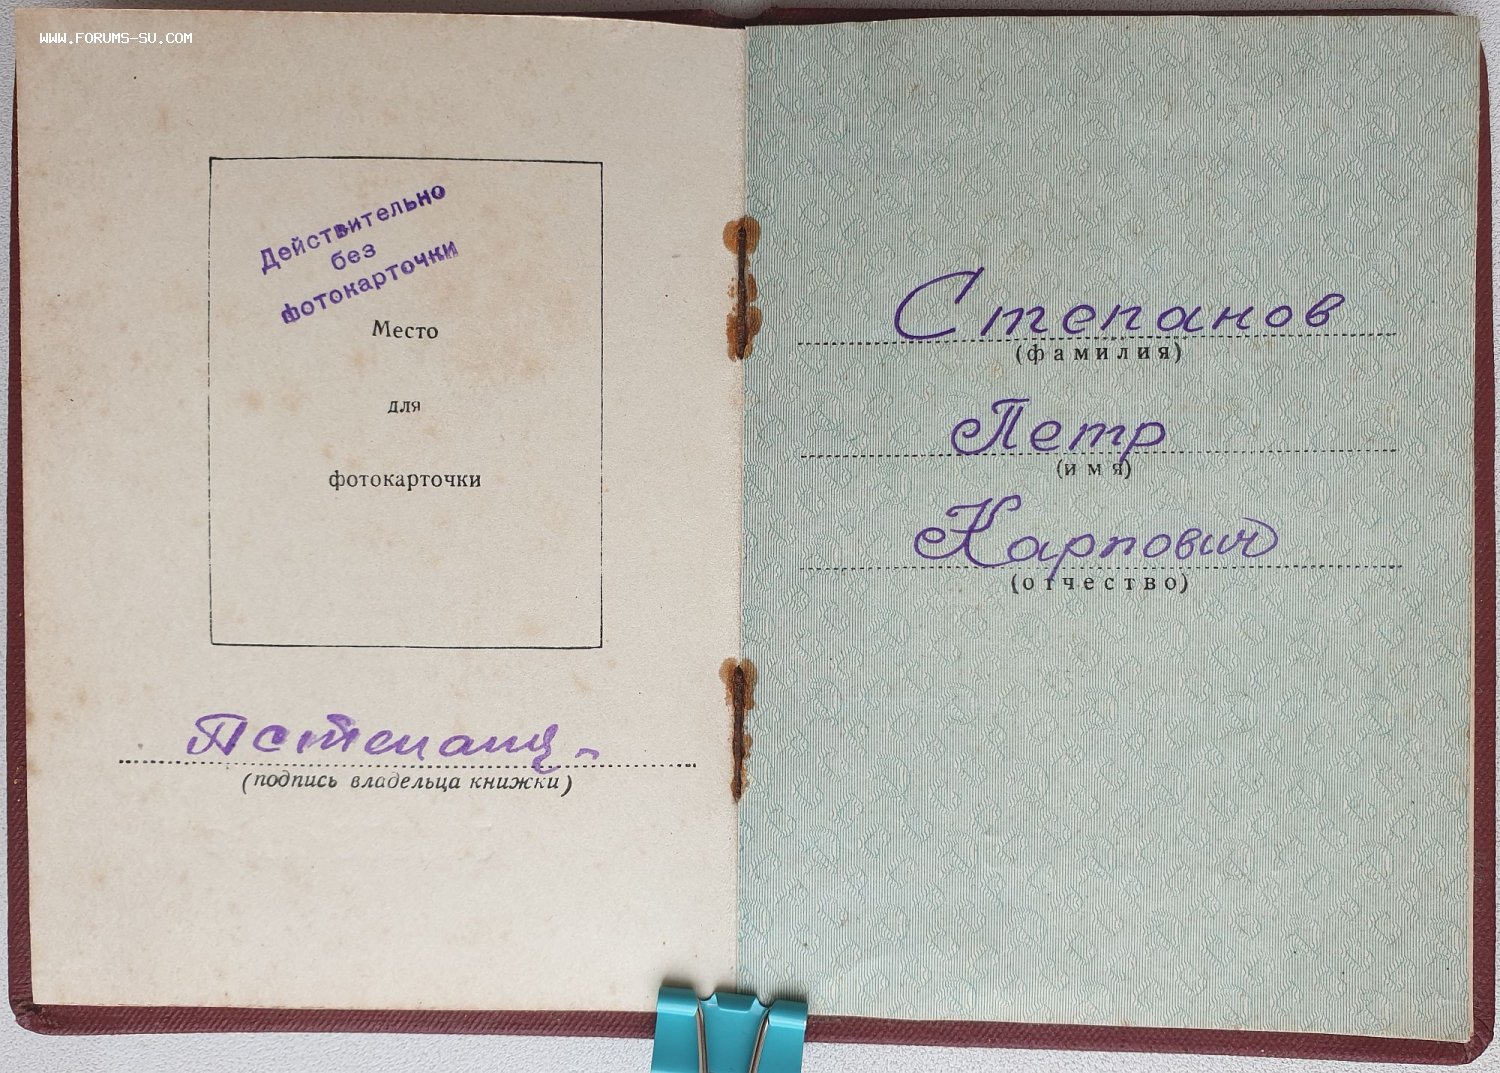 WWW.FORUMS-SU.COM
Действительно
без
фотокарточки
Место
для
фотокарточки
(подпись владельца книжки)
Степанов
(фамилия)
Петр
(имя)
Карпович
(отчество)